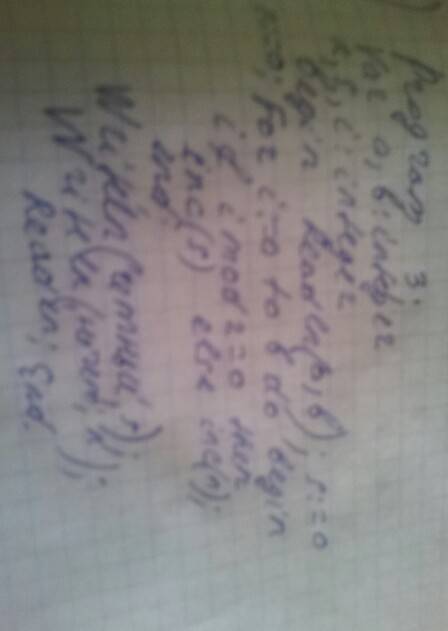 Program 3;
Var a, b: integer
k, s, i: integer
begin Readln(a, b); s:=0
k:=0; for i:=a to b do begin
if i mod 2=0 then
inc(s) else inc(k);
end.
Writeln(четный, s);
Writeln(нечет, k);
Readln; End.